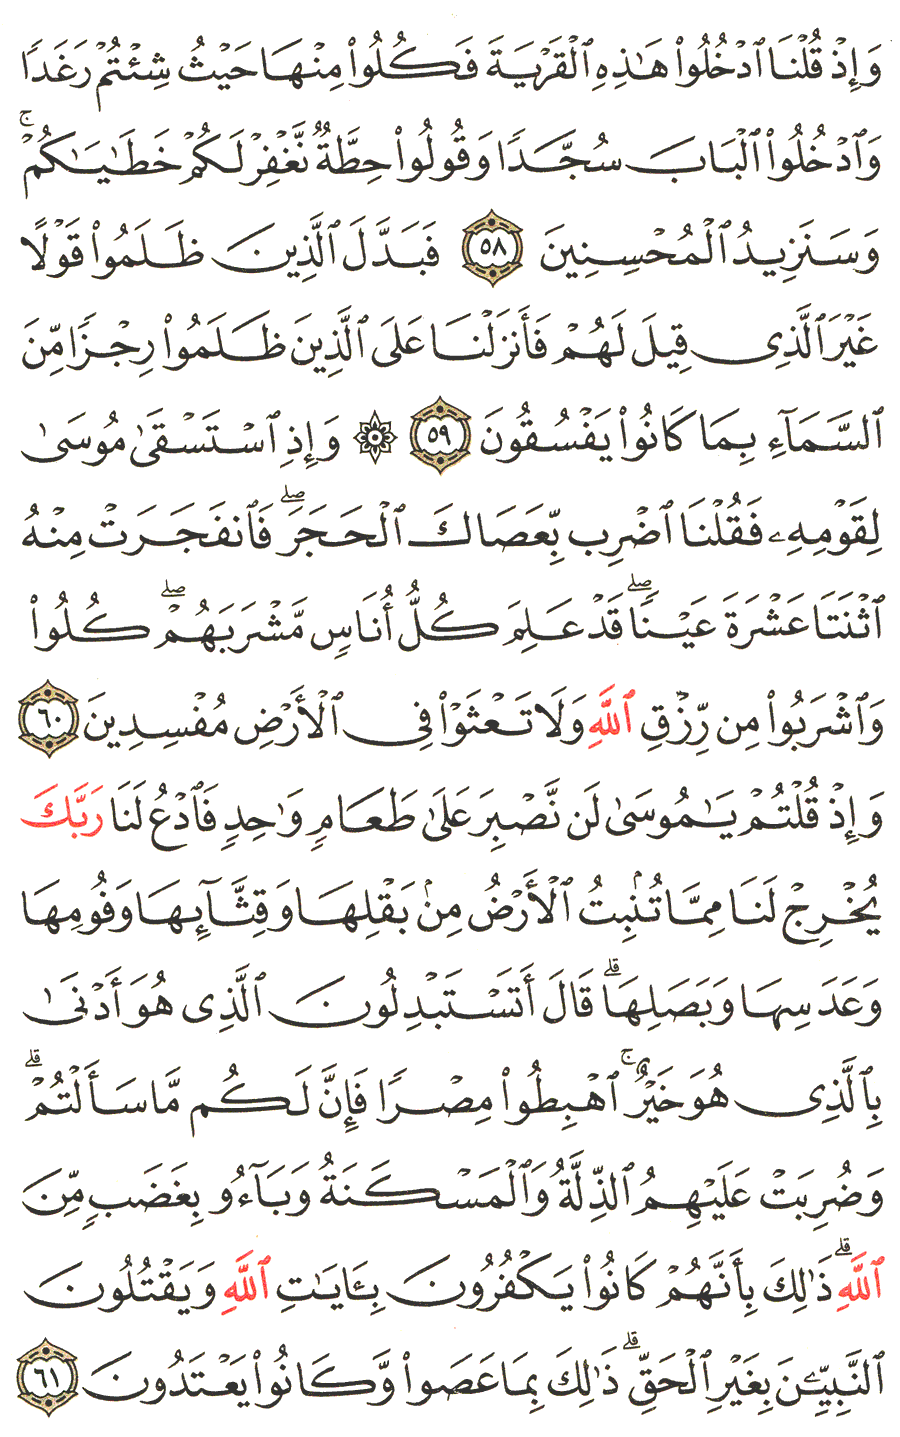 وَإِذْ قُلْنَا ٱدْخُلُوا۟ هَـٰذِهِ ٱلْقَرْيَةَ فَكُلُوا۟ مِنْهَا حَيْثُ شِئْتُمْ رَغَدًا
وَٱدْخُلُوا۟ ٱلْبَابَ سُجَّدًا وَقُولُوا۟ حِطَّةٌ نَّغْفِرْ لَكُمْ خَطَـٰيَـٰكُمْ ۚ
وَسَنَزِيدُ ٱلْمُحْسِنِينَ ٥٨ فَبَدَّلَ ٱلَّذِينَ ظَلَمُوا۟ قَوْلًا
غَيْرَ ٱلَّذِى قِيلَ لَهُمْ فَأَنزَلْنَا عَلَى ٱلَّذِينَ ظَلَمُوا۟ رِجْزًا مِّنَ
ٱلسَّمَآءِ بِمَا كَانُوا۟ يَفْسُقُونَ ٥٩ ۞ وَإِذِ ٱسْتَسْقَىٰ مُوسَىٰ
لِقَوْمِهِۦ فَقُلْنَا ٱضْرِب بِّعَصَاكَ ٱلْحَجَرَ ۖ فَٱنفَجَرَتْ مِنْهُ
ٱثْنَتَا عَشْرَةَ عَيْنًا ۖ قَدْ عَلِمَ كُلُّ أُنَاسٍ مَّشْرَبَهُمْ ۖ كُلُوا۟
وَٱشْرَبُوا۟ مِن رِّزْقِ ٱللَّهِ وَلَا تَعْثَوْا۟ فِى ٱلْأَرْضِ مُفْسِدِينَ ٦٠
وَإِذْ قُلْتُمْ يَـٰمُوسَىٰ لَن نَّصْبِرَ عَلَىٰ طَعَامٍ وَٰحِدٍ فَٱدْعُ لَنَا رَبَّكَ
يُخْرِجْ لَنَا مِمَّا تُنۢبِتُ ٱلْأَرْضُ مِنۢ بَقْلِهَا وَقِثَّآئِهَا وَفُومِهَا
وَعَدَسِهَا وَبَصَلِهَا ۖ قَالَ أَتَسْتَبْدِلُونَ ٱلَّذِى هُوَ أَدْنَىٰ
بِٱلَّذِى هُوَ خَيْرٌ ۚ ٱهْبِطُوا۟ مِصْرًا فَإِنَّ لَكُم مَّا سَأَلْتُمْ ۗ
وَضُرِبَتْ عَلَيْهِمُ ٱلذِّلَّةُ وَٱلْمَسْكَنَةُ وَبَآءُو بِغَضَبٍ مِّنَ
ٱللَّهِ ۗ ذَٰلِكَ بِأَنَّهُمْ كَانُوا۟ يَكْفُرُونَ بِـَٔايَـٰتِ ٱللَّهِ وَيَقْتُلُونَ
ٱلنَّبِيِّـۧنَ بِغَيْرِ ٱلْحَقِّ ۗ ذَٰلِكَ بِمَا عَصَوا۟ وَّكَانُوا۟ يَعْتَدُونَ ٦١